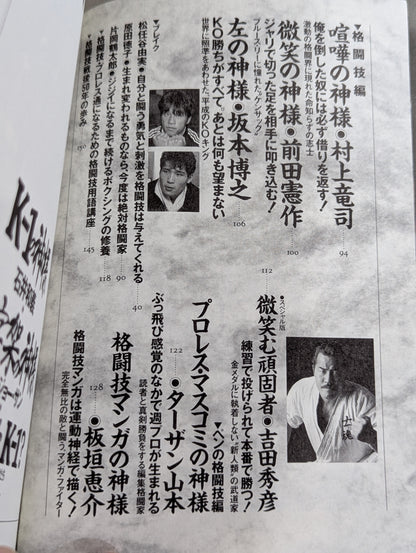 ▼格闘技編
喧嘩の神様・村上竜司
俺を倒した奴には必ず借りを返す!
激動の格闘界に遅れた命知らずの志士
94
微笑の神様・前田憲作
ジャリで切った足を相手に叩き込む!
ブルース・リーに憧れた“ケンサック”
100
左の神様・坂本博之
KO勝ちがすべて。あとは何も望まない
世界に照準をあわせた、平成のKOキング
106
▼ブレイク
松任谷由実・自分と闘う勇気と刺激を格闘技は与えてくれる
40
原田徳子・生まれ変われるものなら、今度は絶対格闘家
90
片岡鶴太郎・ジジイになるまで続けるボクシングの修養
118
▼格闘技・プロレス通になるための格闘技用語講座
145
▼格闘技戦後50年の歩み
150
●スペシャル版
微笑む頑固者・吉田秀彦
練習で投げられて本番で勝つ!
金メダルに執着しない“新人類”の武道家
112
▼ペンの格闘技編
プロレス・マスコミの神様
・ターザン山本
ぶっ飛び感覚のなかで週プロが生まれる
読者と真剣勝負をする編集格闘家
122
格闘技マンガの神様
・板垣恵介
格闘技マンガは運動神経で描く!
完全無比の敵と闘う、マンガ・ファイター
128